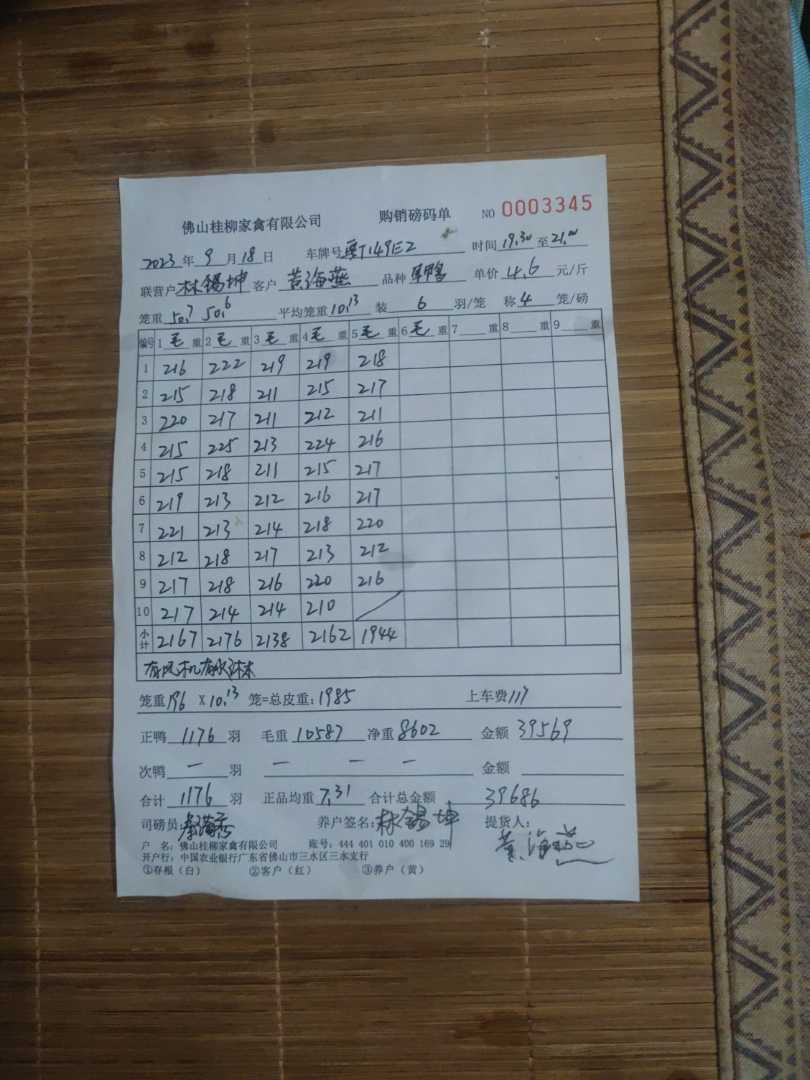 佛山桂柳家禽有限公司 购销磅码单 NO 0003345
2023 年 9 月 18 日 车牌号 149E2 时间 19.30 至 21.00
联营户 林锡坤 客户 黄海燕 品种 鸭 单价 4.6 元/斤
笼重 50.7 50.6 平均笼重 10.13 装 6 羽/笼 称 4 笼/磅
编号 1 毛 重 2 毛 重 3 毛 重 4 毛 重 5 毛 重 6 毛 重 7 重 8 重 9 重
1 216 222 219 219 218
2 215 218 211 215 217
3 220 217 211 212 211
4 215 225 213 224 216
5 215 218 211 215 217
6 219 213 212 216 217
7 221 213 214 218 220
8 212 218 217 213 212
9 217 218 216 220 216
10 217 214 214 210
小计 2167 2176 2138 2162 1944
有风机有水淋
笼重 196 X 10.13 笼=总皮重: 1985 上车费 117
正鸭 1176 羽 毛重 10587 净重 8602 金额 39569
次鸭 — 羽 — — — 金额
合计 1176 羽 正品均重 7.31 合计总金额 39686
司磅员: 养户签名: 林锡坤 提货人: 黄海燕
户 名: 佛山桂柳家禽有限公司 账号: 444 401 010 400 169 29
开户行: 中国农业银行广东省佛山市三水区三水支行
①存根(白) ②客户(红) ③养户(黄)